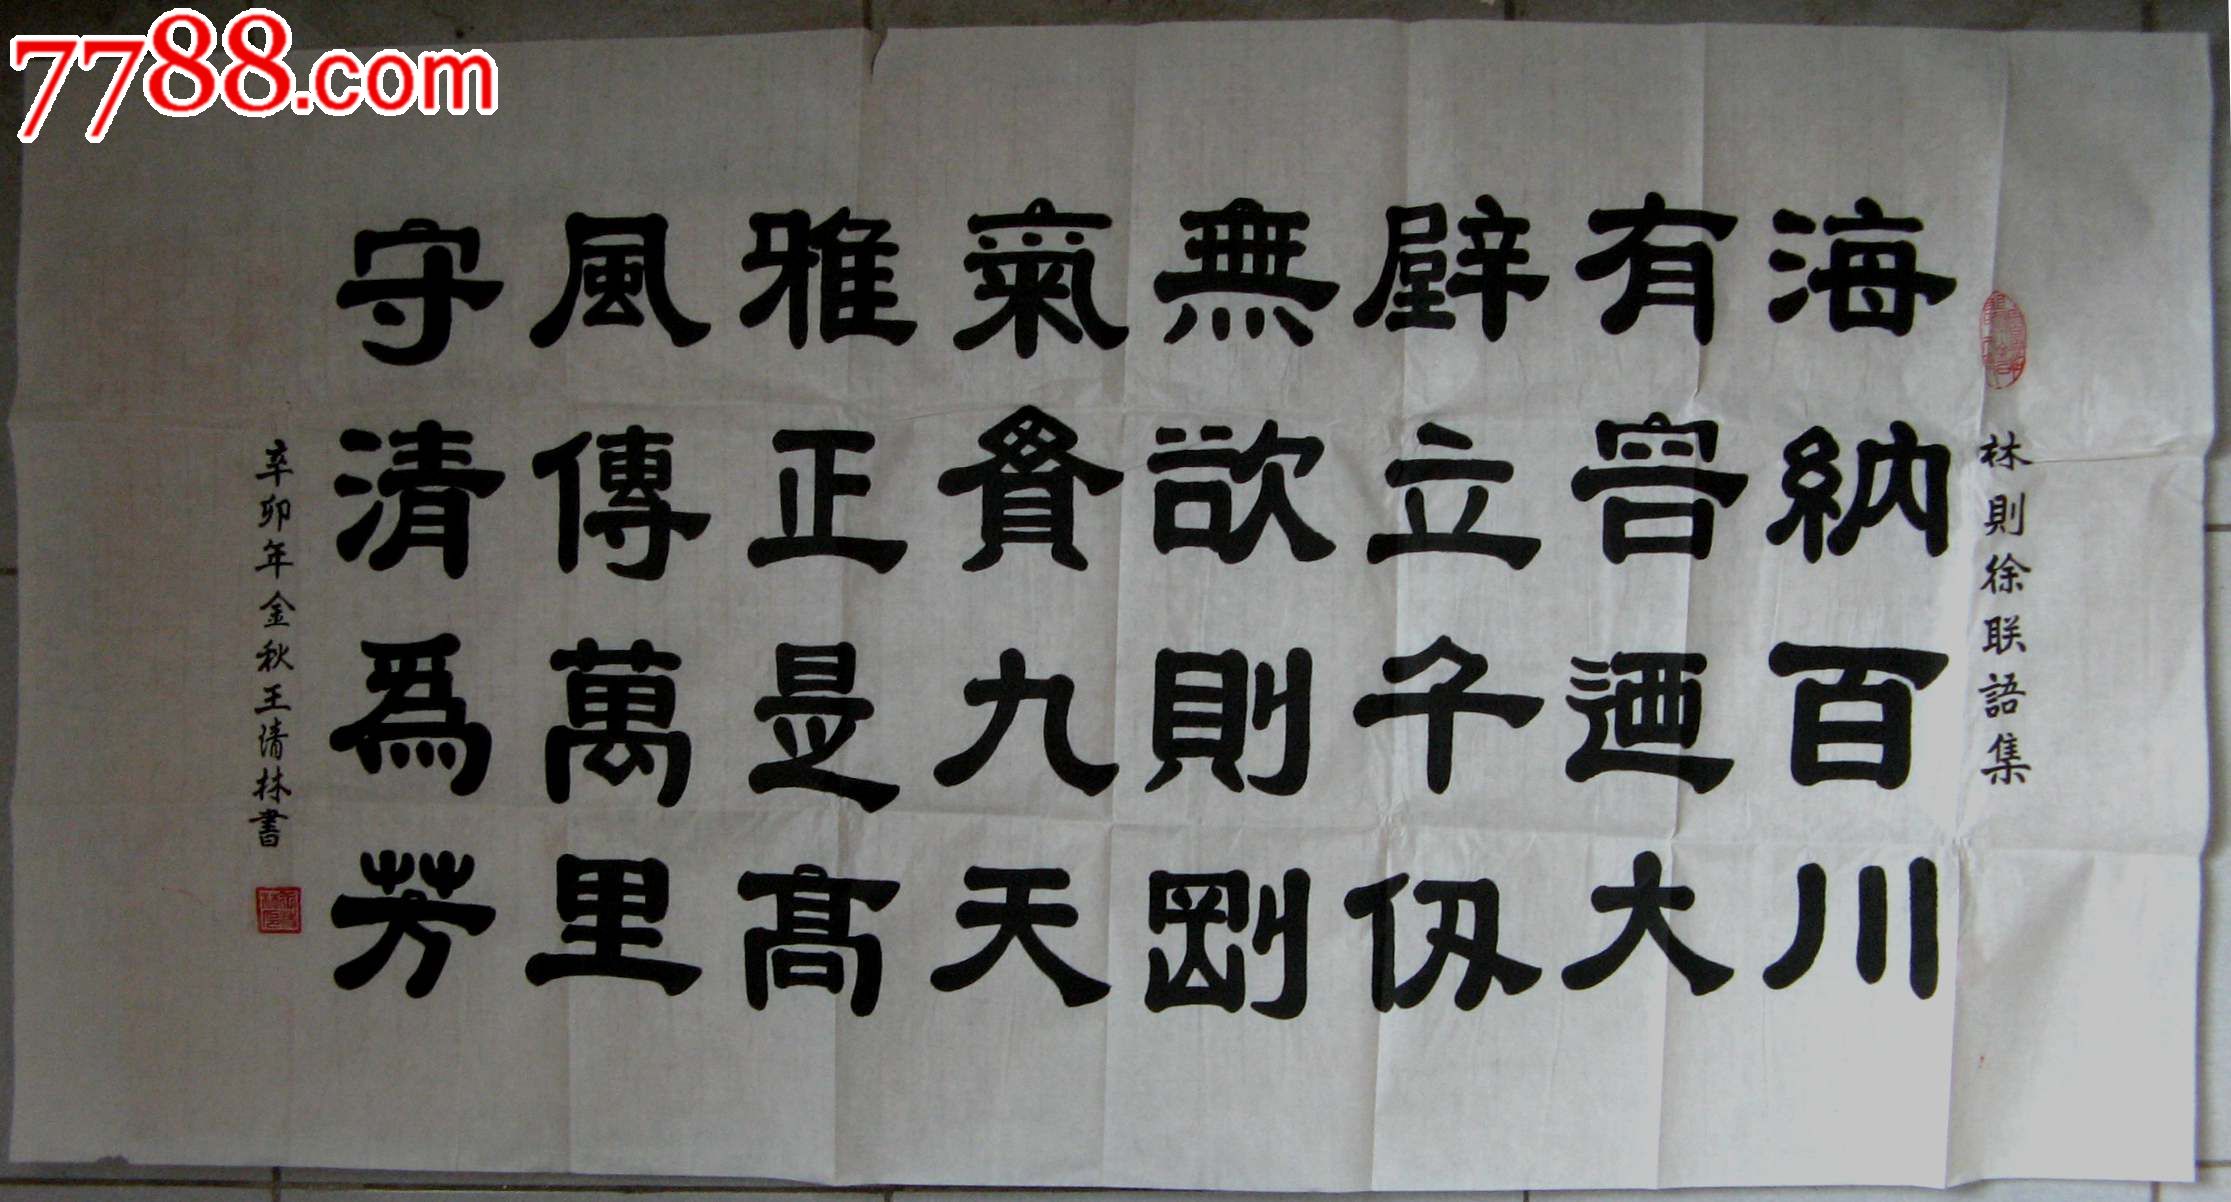 7788.com
林則徐联語集
海納百川
有容迺大
壁立千仞
無欲則剛
氣貫九天
雅正是高
風傳萬里
守清爲芳
辛卯年金秋王清林書